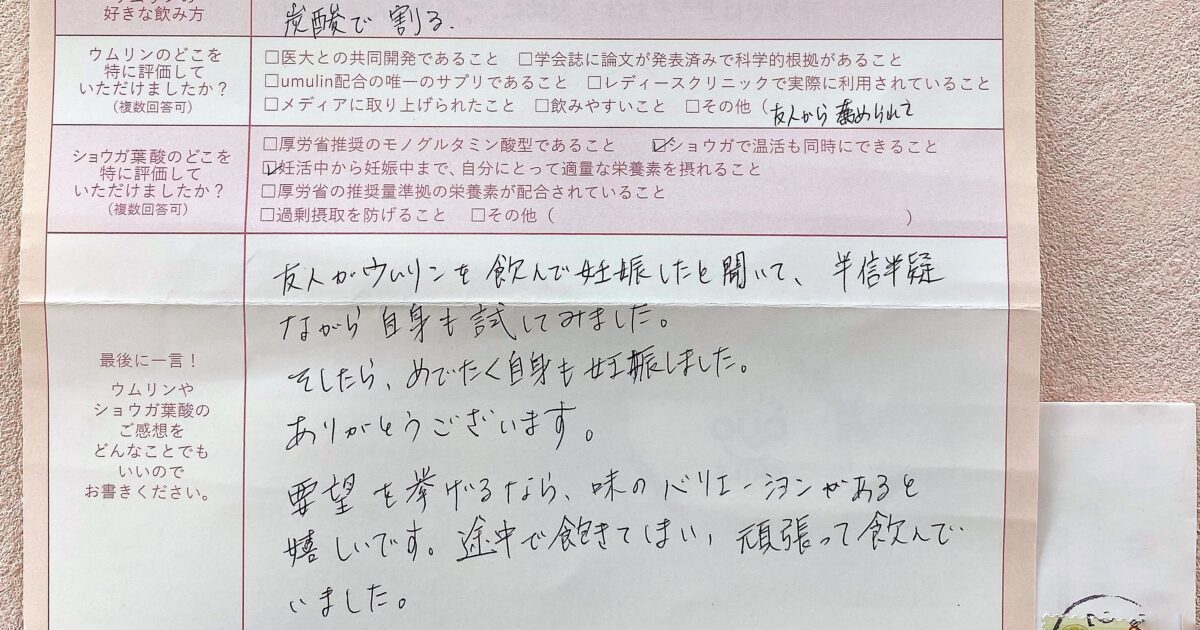 好きな飲み方
炭酸で割る.
ウムリンのどこを
特に評価して
いただけましたか？
(複数回答可)
□医大との共同開発であること □学会誌に論文が発表済みで科学的根拠があること
□umulin配合の唯一のサプリであること □レディースクリニックで実際に利用されていること
□メディアに取り上げられたこと □飲みやすいこと □その他（友人から薦められて
ショウガ葉酸のどこを
特に評価して
いただけましたか？
(複数回答可)
□厚労省推奨のモノグルタミン酸型であること ☑ショウガで温活も同時にできること
☑妊活中から妊娠中まで、自分にとって適量な栄養素を摂れること
□厚労省の推奨量準拠の栄養素が配合されていること
□過剰摂取を防げること □その他（ ）
最後に一言！
ウムリンや
ショウガ葉酸の
ご感想を
どんなことでも
いいので
お書きください。
友人がウムリンを飲んで妊娠したと聞いて、半信半疑
ながら自身も試してみました。
そしたら、めでたく自身も妊娠しました。
ありがとうございます。
要望を挙げるなら、味のバリエーションがあると
嬉しいです。途中で飽きてしまい、頑張って飲んで
いました。